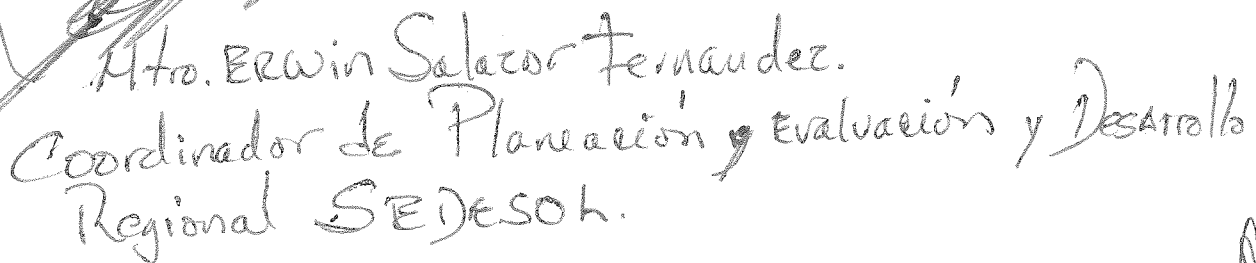 Mtro. ERwin Salazar Fernandez.
Coordinador de Planeación y Evaluación y Desarrollo
Regional SEDESOL.